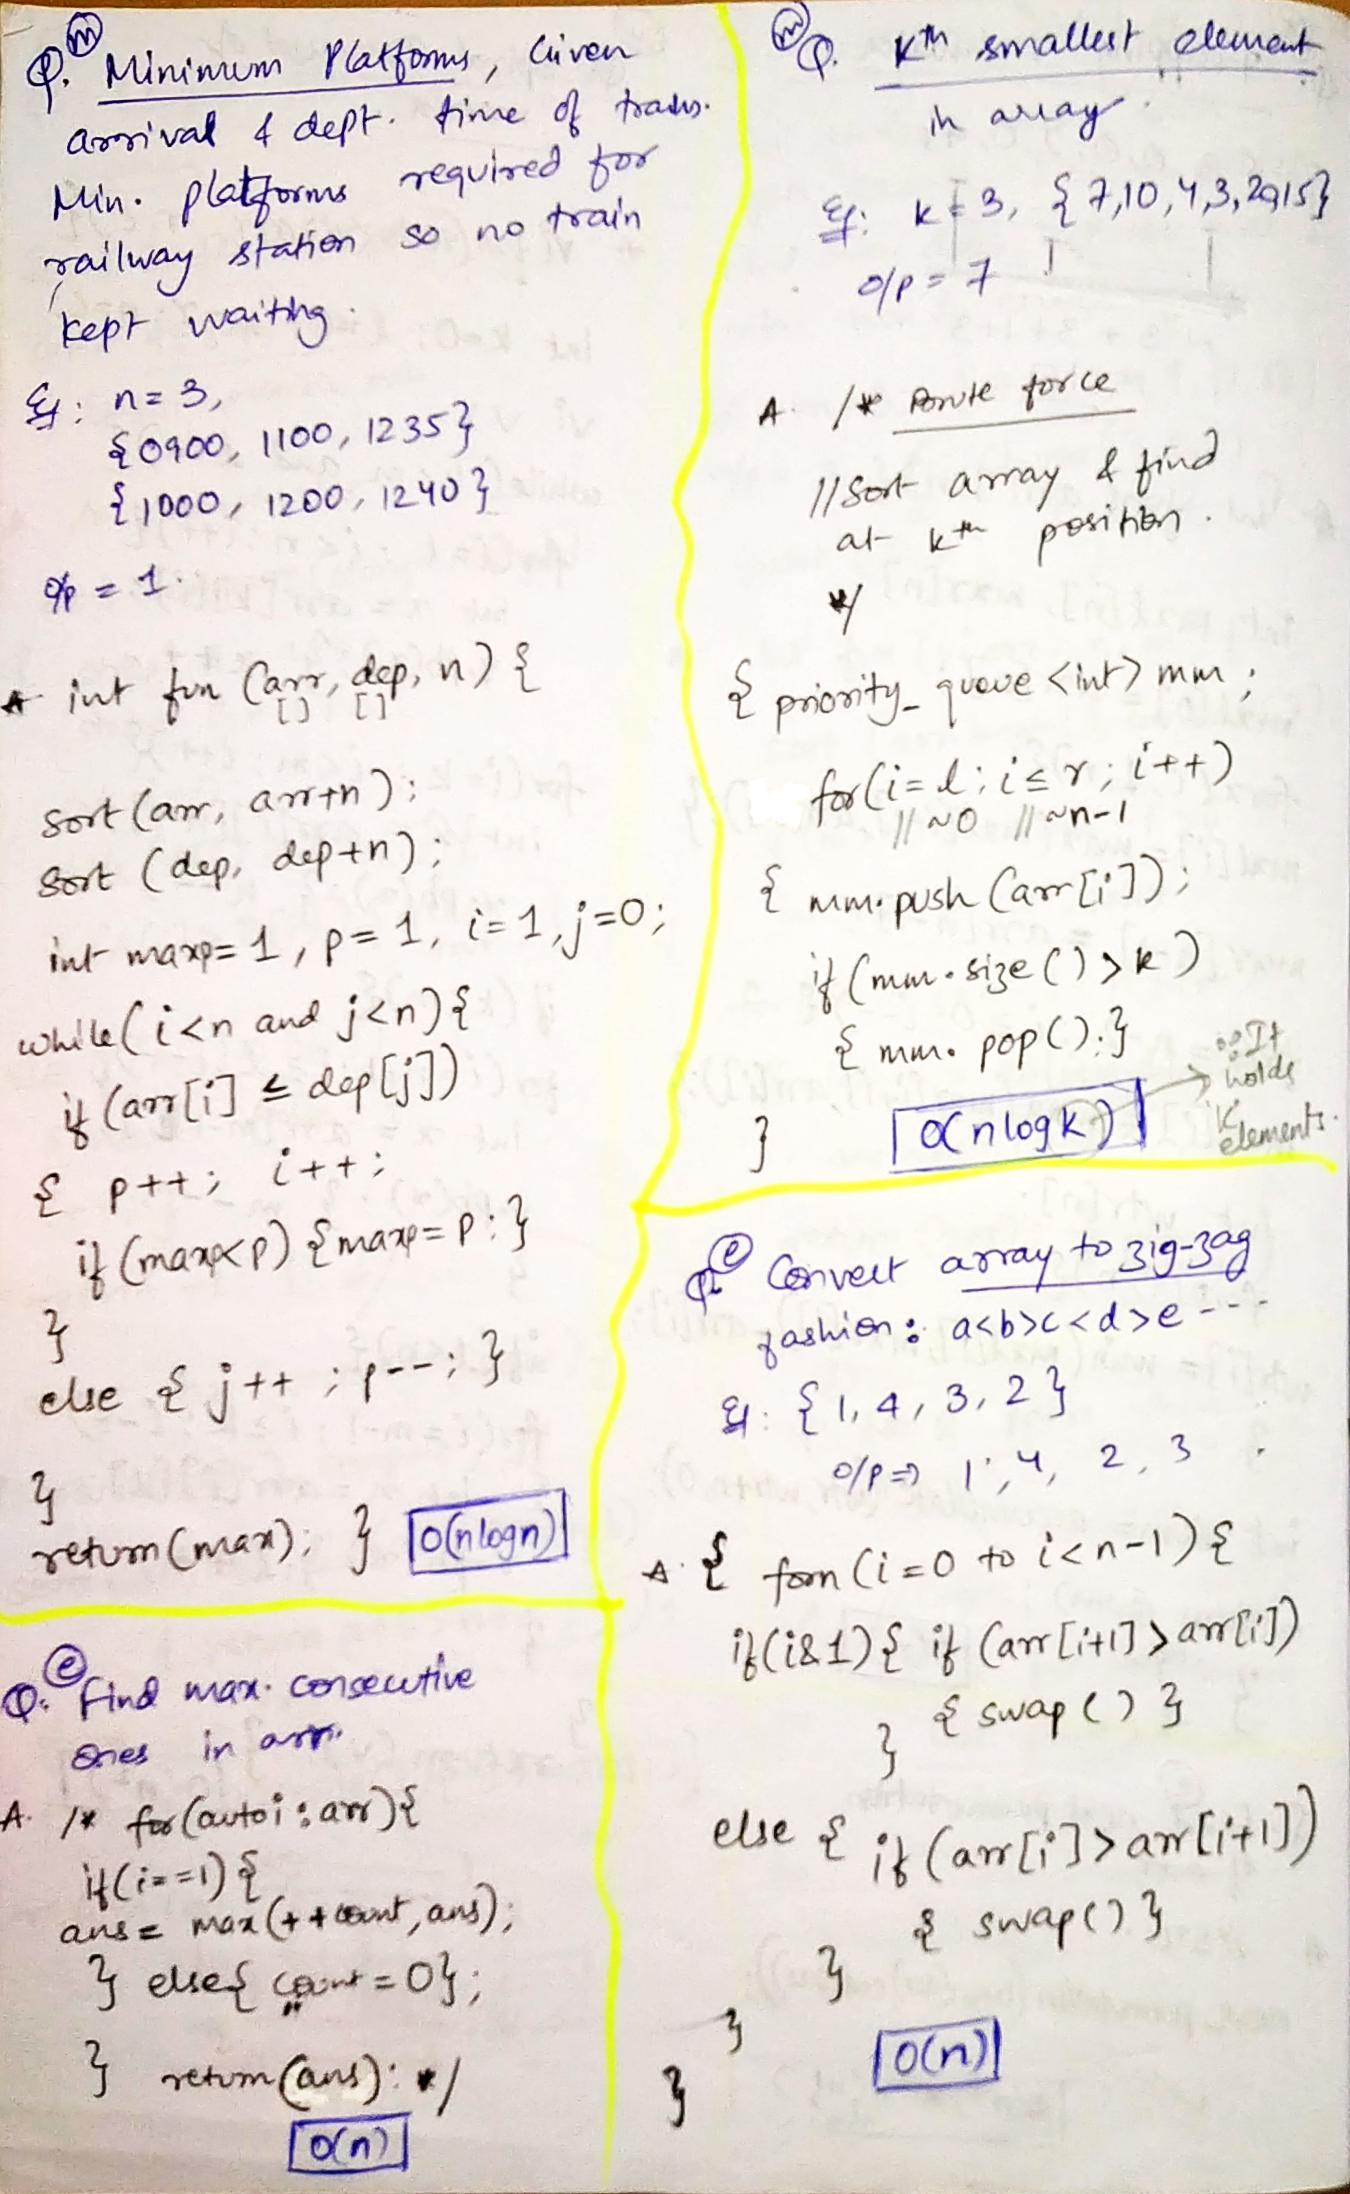 Q. (m) Minimum Platforms, Given
arrival & dept. time of trains.
Min. platforms required for
railway station so no train
kept waiting.
Eg: n=3,
{0900, 1100, 1235}
{1000, 1200, 1240}
o/p = 1.
A int fun (arr, dep, n) {
[] []
sort (arr, arr+n);
sort (dep, dep+n);
int maxp=1, p=1, i=1, j=0;
while(i<n and j<n){
if (arr[i] ≤ dep[j])
{ p++; i++;
if (maxp<p) {maxp=p;}
}
else { j++; p--; }
}
return(max); } O(nlogn)
Q. (e) Find max. consecutive
ones in arr.
A. /* for(auto i : arr){
if(i==1){
ans = max(++count, ans);
} else{ count=0};
} return(ans); */
O(n)
(m) Q. Kth smallest element
in array.
Eg: k=3, {7,10,4,3,20,15}
o/p = 7
A. /* Brute force
//Sort array & find
at kth position.
*/
{ priority_queue <int> mm;
for(i=l; i≤r; i++)
//~0 //~n-1
{ mm.push(arr[i]);
if (mm.size() > k)
{ mm.pop();}
} O(nlogk) ∵ It
holds
K
elements.
Q. (e) Convert array to zig-zag
fashion: a<b>c<d>e ---
Eg: {1, 4, 3, 2}
o/p ⇒ 1, 4, 2, 3
A. { forn (i=0 to i<n-1) {
if(i&1){ if (arr[i+1]>arr[i])
{ swap() }
}
else { if (arr[i]>arr[i+1])
{ swap() }
}
}
} O(n)